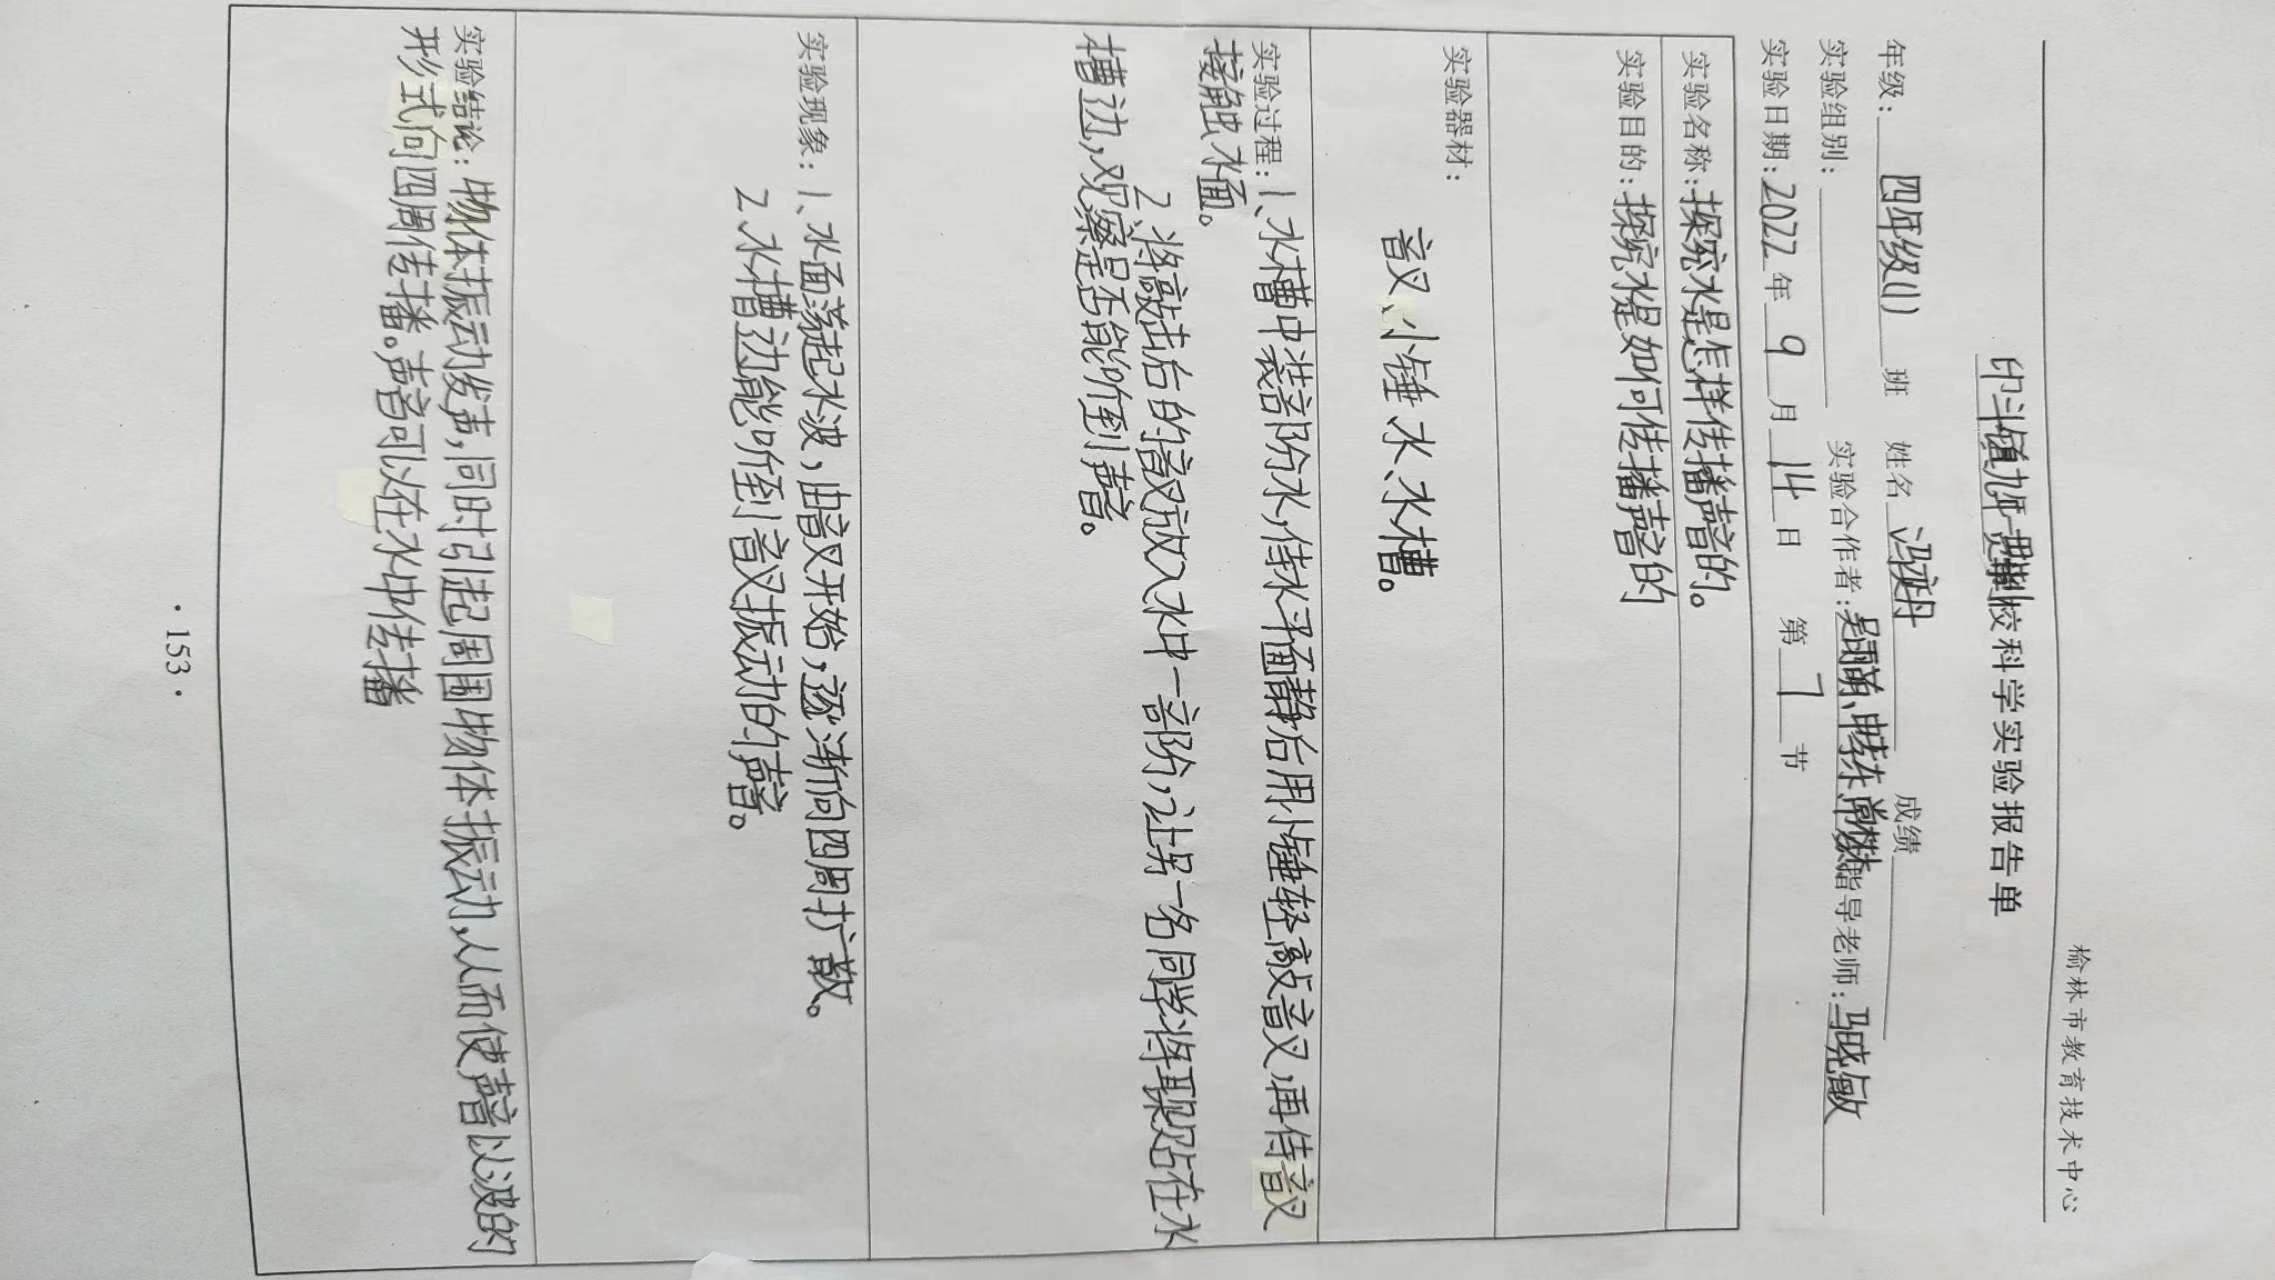 榆林市教育技术中心
印斗镇九年一贯制学校科学实验报告单
年级:四年级(1)班 姓名 成绩
实验组别: 实验合作者: 指导老师:
实验日期:2022年9月14日 第7节
实验名称:探究水是怎样传播声音的。
实验目的:探究水是如何传播声音的
实验器材:
音叉、小锤、水、水槽。
实验过程:1、水槽中装部分水,待水平面静后用小锤轻敲音叉,再待音叉
接触水面。
2、将敲击后的音叉放入水中一部分,让另一名同学将耳朵贴在水
槽边,观察是否能听到声音。
实验现象:1、水面荡起水波,由音叉开始,逐渐向四周扩散。
2、水槽边能听到音叉振动的声音。
实验结论:物体振动发声,同时引起周围物体振动,从而使声音以波的
形式向四周传播。声音可以在水中传播
·153·